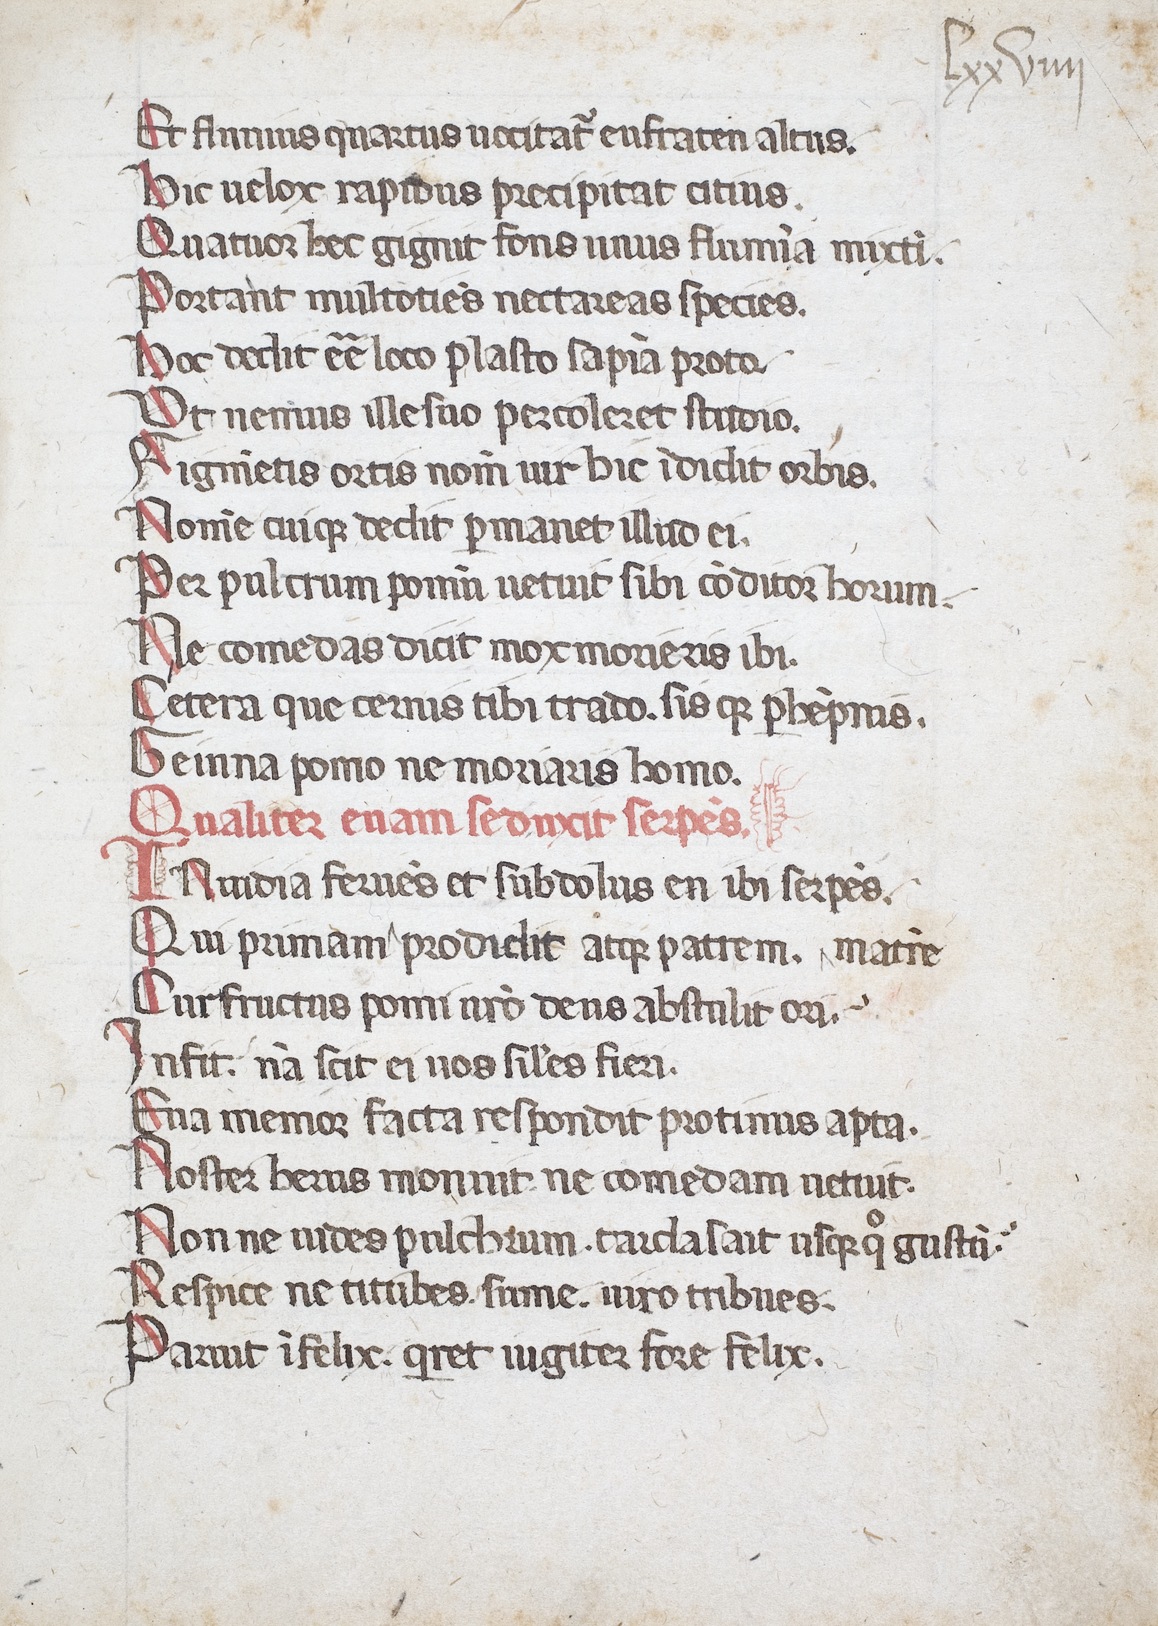 LxxViiii
Et fluuius quartus uocitat᷑ eufraten altus.
Hic uelox rapidus precipitat citius.
Quatuor hec gignit fons unus flumīa mixti.
Portant multotiēs nectareas species.
Hoc dedit ēē loco plasto sapīa proto
Vt nemus ille suo percoleret studio.
Figmētis ortis nom̄ uir hic īdidit orbis.
Nomē cuiqꝫ dedit ꝑmanet illud ei.
Per pulcrum pomū uetuit sibi cōditor horum.
Ne comedas dicit mox morieris ibi.
Cetera que cernis tibi trado. sis qꝫ ꝑhēpnis.
Geminna pomo ne moriaris homo.
Qualiter euam seduxit serpēs.
INuidia feruēs et subdolus en ibi serpēs.
Qui primam prodidit atqꝫ patrem. matrē
Cur fructus pomi urō deus abstulit ori.
Infit. nā scit ei uos siles fieri.
Eua memor facta respondit protinus apta.
Noster herus monuit ne comedam uetuit.
Non ne uides pulchrum. tarda sait usqꝫ qͦ gustū.
Respice ne titubes. sume. uiro tribues.
Paruit īfelix. q̄ret iugiter fore felix.